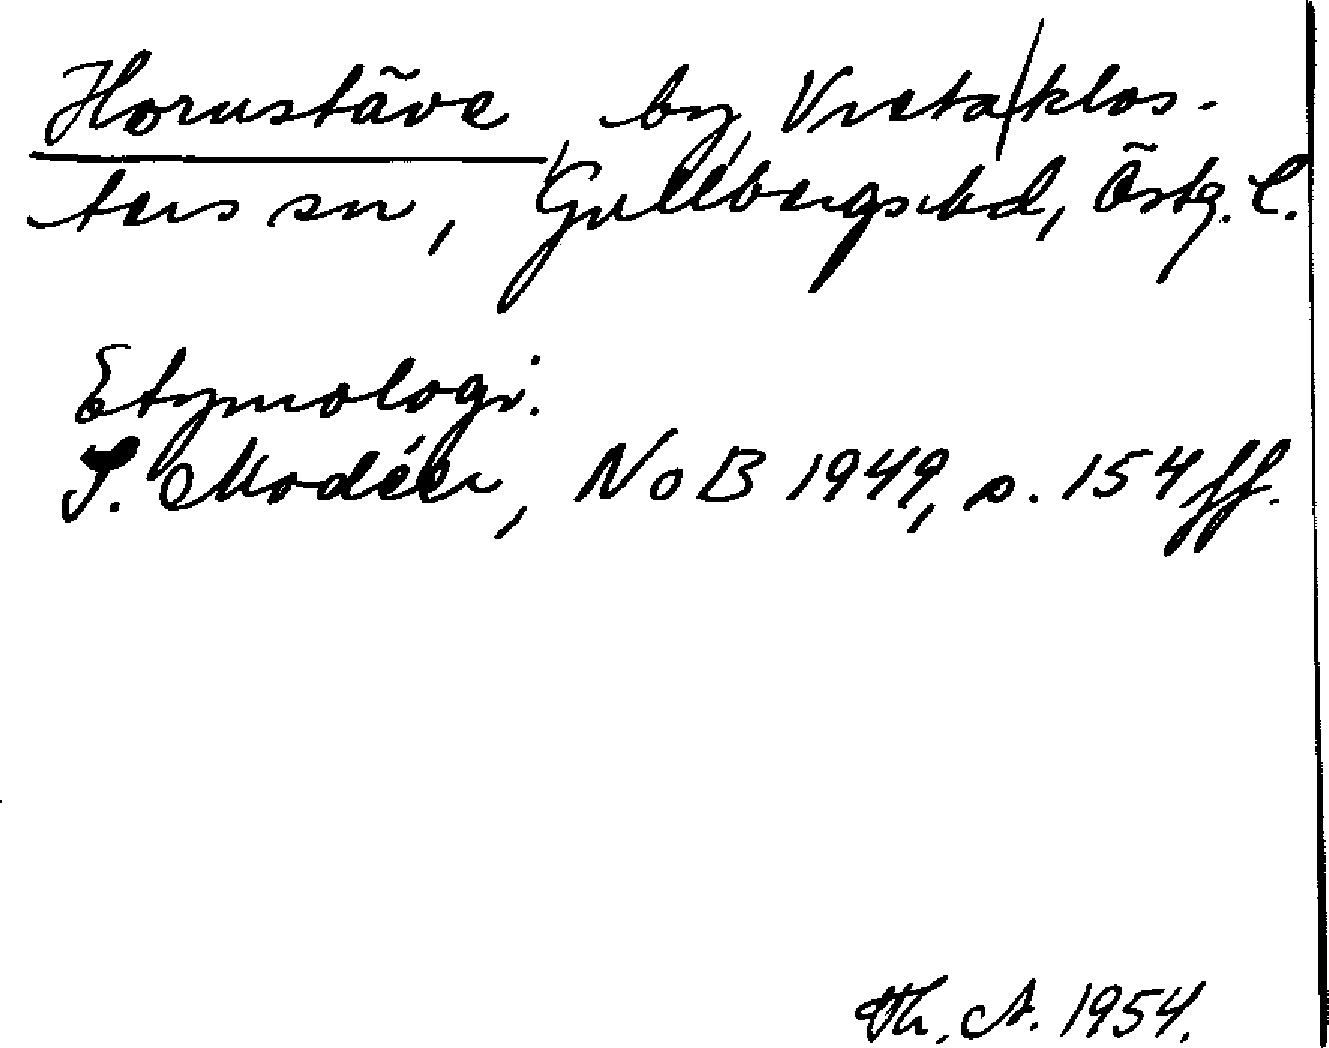 Horustäve, by, Vreta klos-
ters sn, Gullbergs hd, Östg. l.
Etymologi:
I. Modéer, NoB 1949, s. 154 ff.
Th. A. 1954.